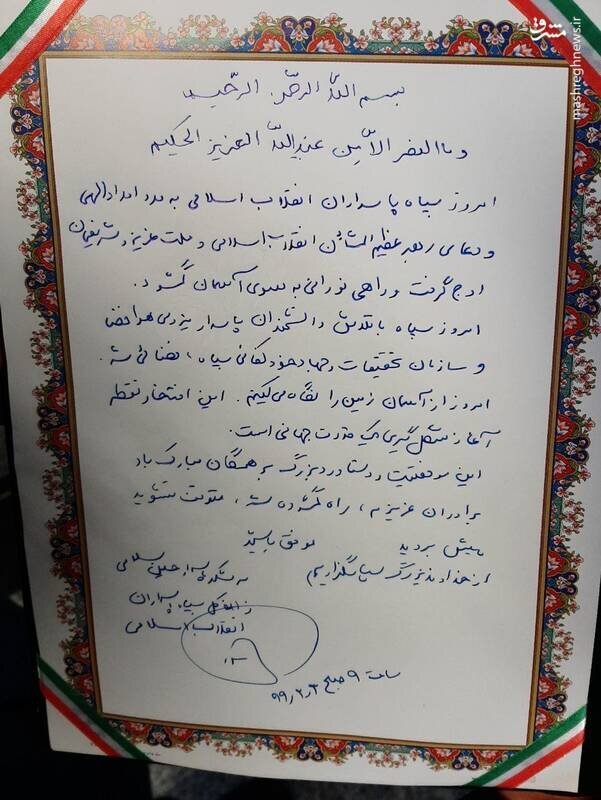 بسم الله الرحمن الرحیم
و ما النصر الا من عند الله العزیز الحکیم
امروز سپاه پاسداران انقلاب اسلامی به مدد امداد الهی
و دعای رهبر عظیم الشأن انقلاب اسلامی و ملت عزیز و شریفمان
اوج گرفت و راهی نورانی به سوی آسمان گشود.
امروز سپاه با تلاش دانشمندان پاسدار نیروی هوافضا
و سازمان تحقیقات و جهاد خودکفائی سپاه، فضائی شد.
امروز از آسمان زمین را نگاه می‌کنیم. این افتخار نقطه
آغاز شکل‌گیری یک قدرت جهانی است.
این موفقیت و دستاورد بزرگ بر همگان مبارک باد
برادران عزیزم، راه گشوده شد، متوقف نشوید
پیش بروید موفق باشید
از خداوند بزرگ سپاسگزاریم
سرلشکر پاسدار حسین سلامی
فرمانده کل سپاه پاسداران
انقلاب اسلامی
ساعت ۹ صبح ۹۹٫۲٫۳
مشرق
mashreghnews.ir